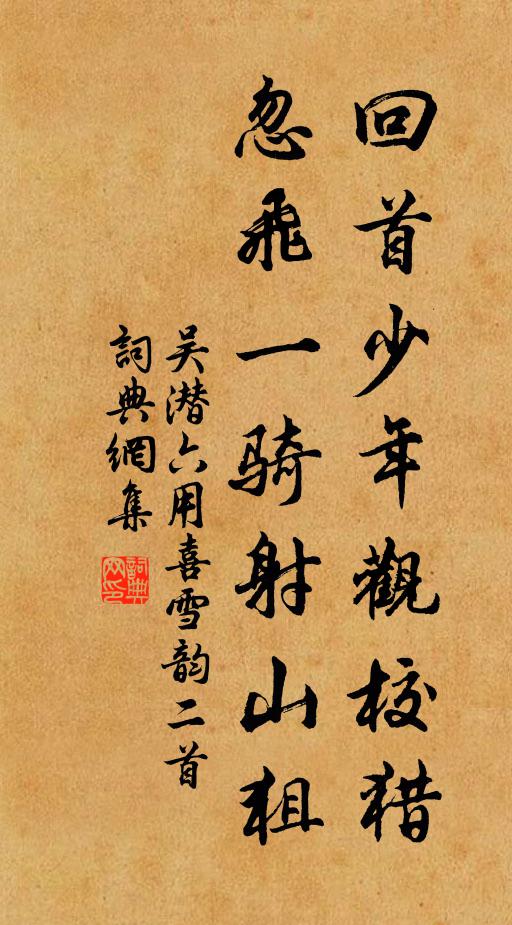 回首少年觀校猎
忽飛一骑射山狙
吴潜六用喜雪韵二首
詞典網集
詞典网印